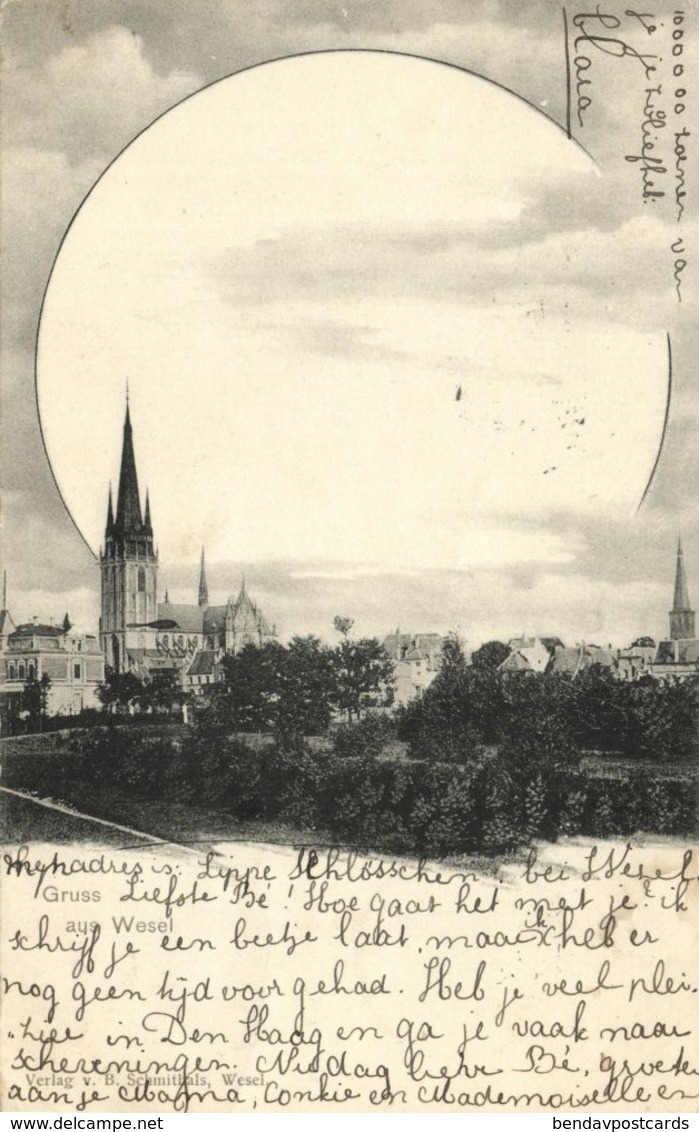 Mijn adres is: Lippe Schlösschen, bei Wesel.
Gruss
aus Wesel
Liefste Bé! Hoe gaat het met je? ik
schrijf je een beetje laat, maar ik heb er
nog geen tijd voor gehad. Heb je veel plei-
zier in Den Haag en ga je vaak naar
scheveningen. Nu dag lieve Bé, groeten
Verlag v. B. Schmithals, Wesel
aan je Mama, Conkie en Mademoiselle en
10000000 zoenen van
je je zoliefheb.
Clara
© delcampe.net
bendavpostcards